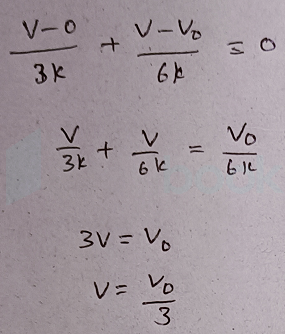 V-0/3k + V-V₀/6k = 0
V/3k + V/6k = V₀/6k
3V = V₀
V = V₀/3